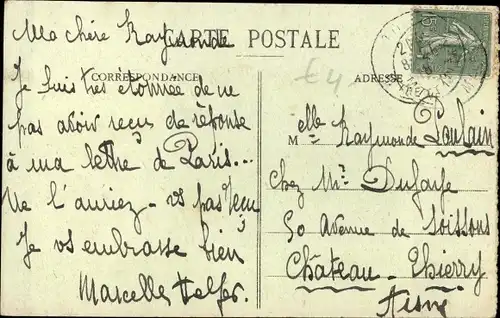 CARTE POSTALE
CORRESPONDANCE
ADRESSE
Ma chère Raymonde
Je suis très étonnée de ne
pas avoir reçu de réponse
à ma lettre de Paris...
Ne l'auriez-vs pas reçu
Je vs embrasse bien
Marcelle
E4
Melle Raymonde Poulain
chez Mr Dufaye
50 Avenue de Soissons
Château-Thierry
Aisne